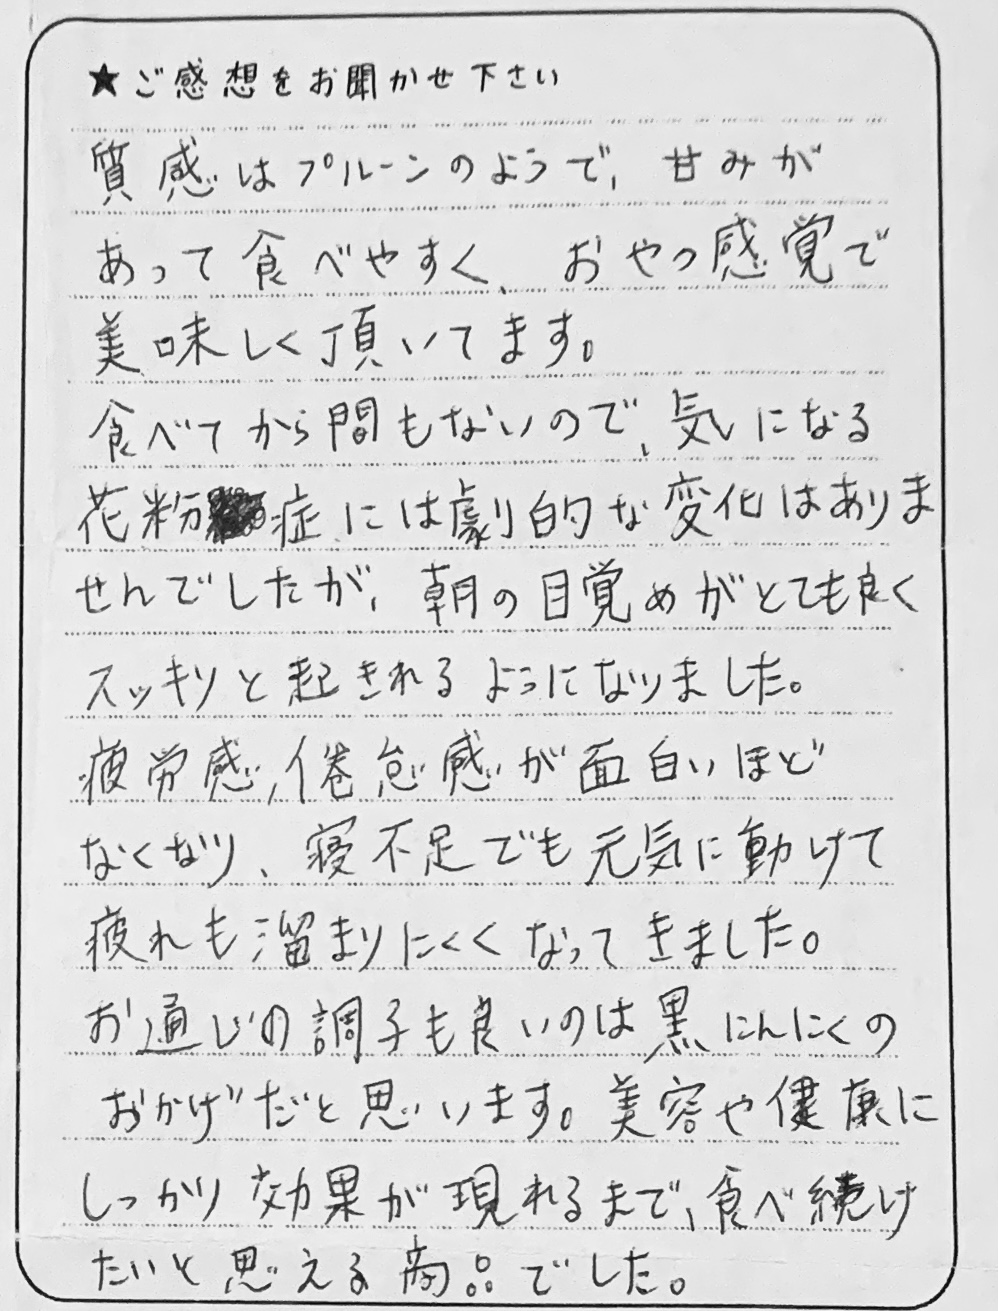 ★ご感想をお聞かせ下さい
質感はプルーンのようで、甘みが
あって食べやすく、おやつ感覚で
美味しく頂いてます。
食べてから間もないので、気になる
花粉症には劇的な変化はありま
せんでしたが、朝の目覚めがとても良く
スッキリと起きれるようになりました。
疲労感、倦怠感が面白いほど
なくなり、寝不足でも元気に動けて
疲れも溜まりにくくなってきました。
お通じの調子も良いのは黒にんにくの
おかげだと思います。美容や健康に
しっかり効果が現れるまで、食べ続け
たいと思える商品でした。